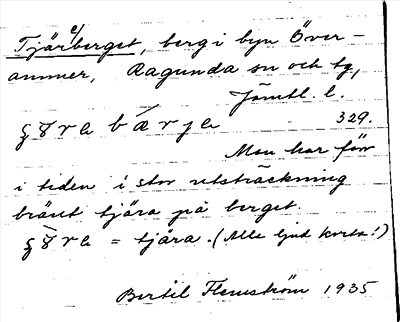 Tjärberget, berg i byn Över-
ammer, Ragunda sn och tg,
Jämtl. l.
329.
Man har förr
i tiden i stor utsträckning
bränt tjära på berget.
= tjära. (Alla ljud korta!)
Bertil Flemström 1935